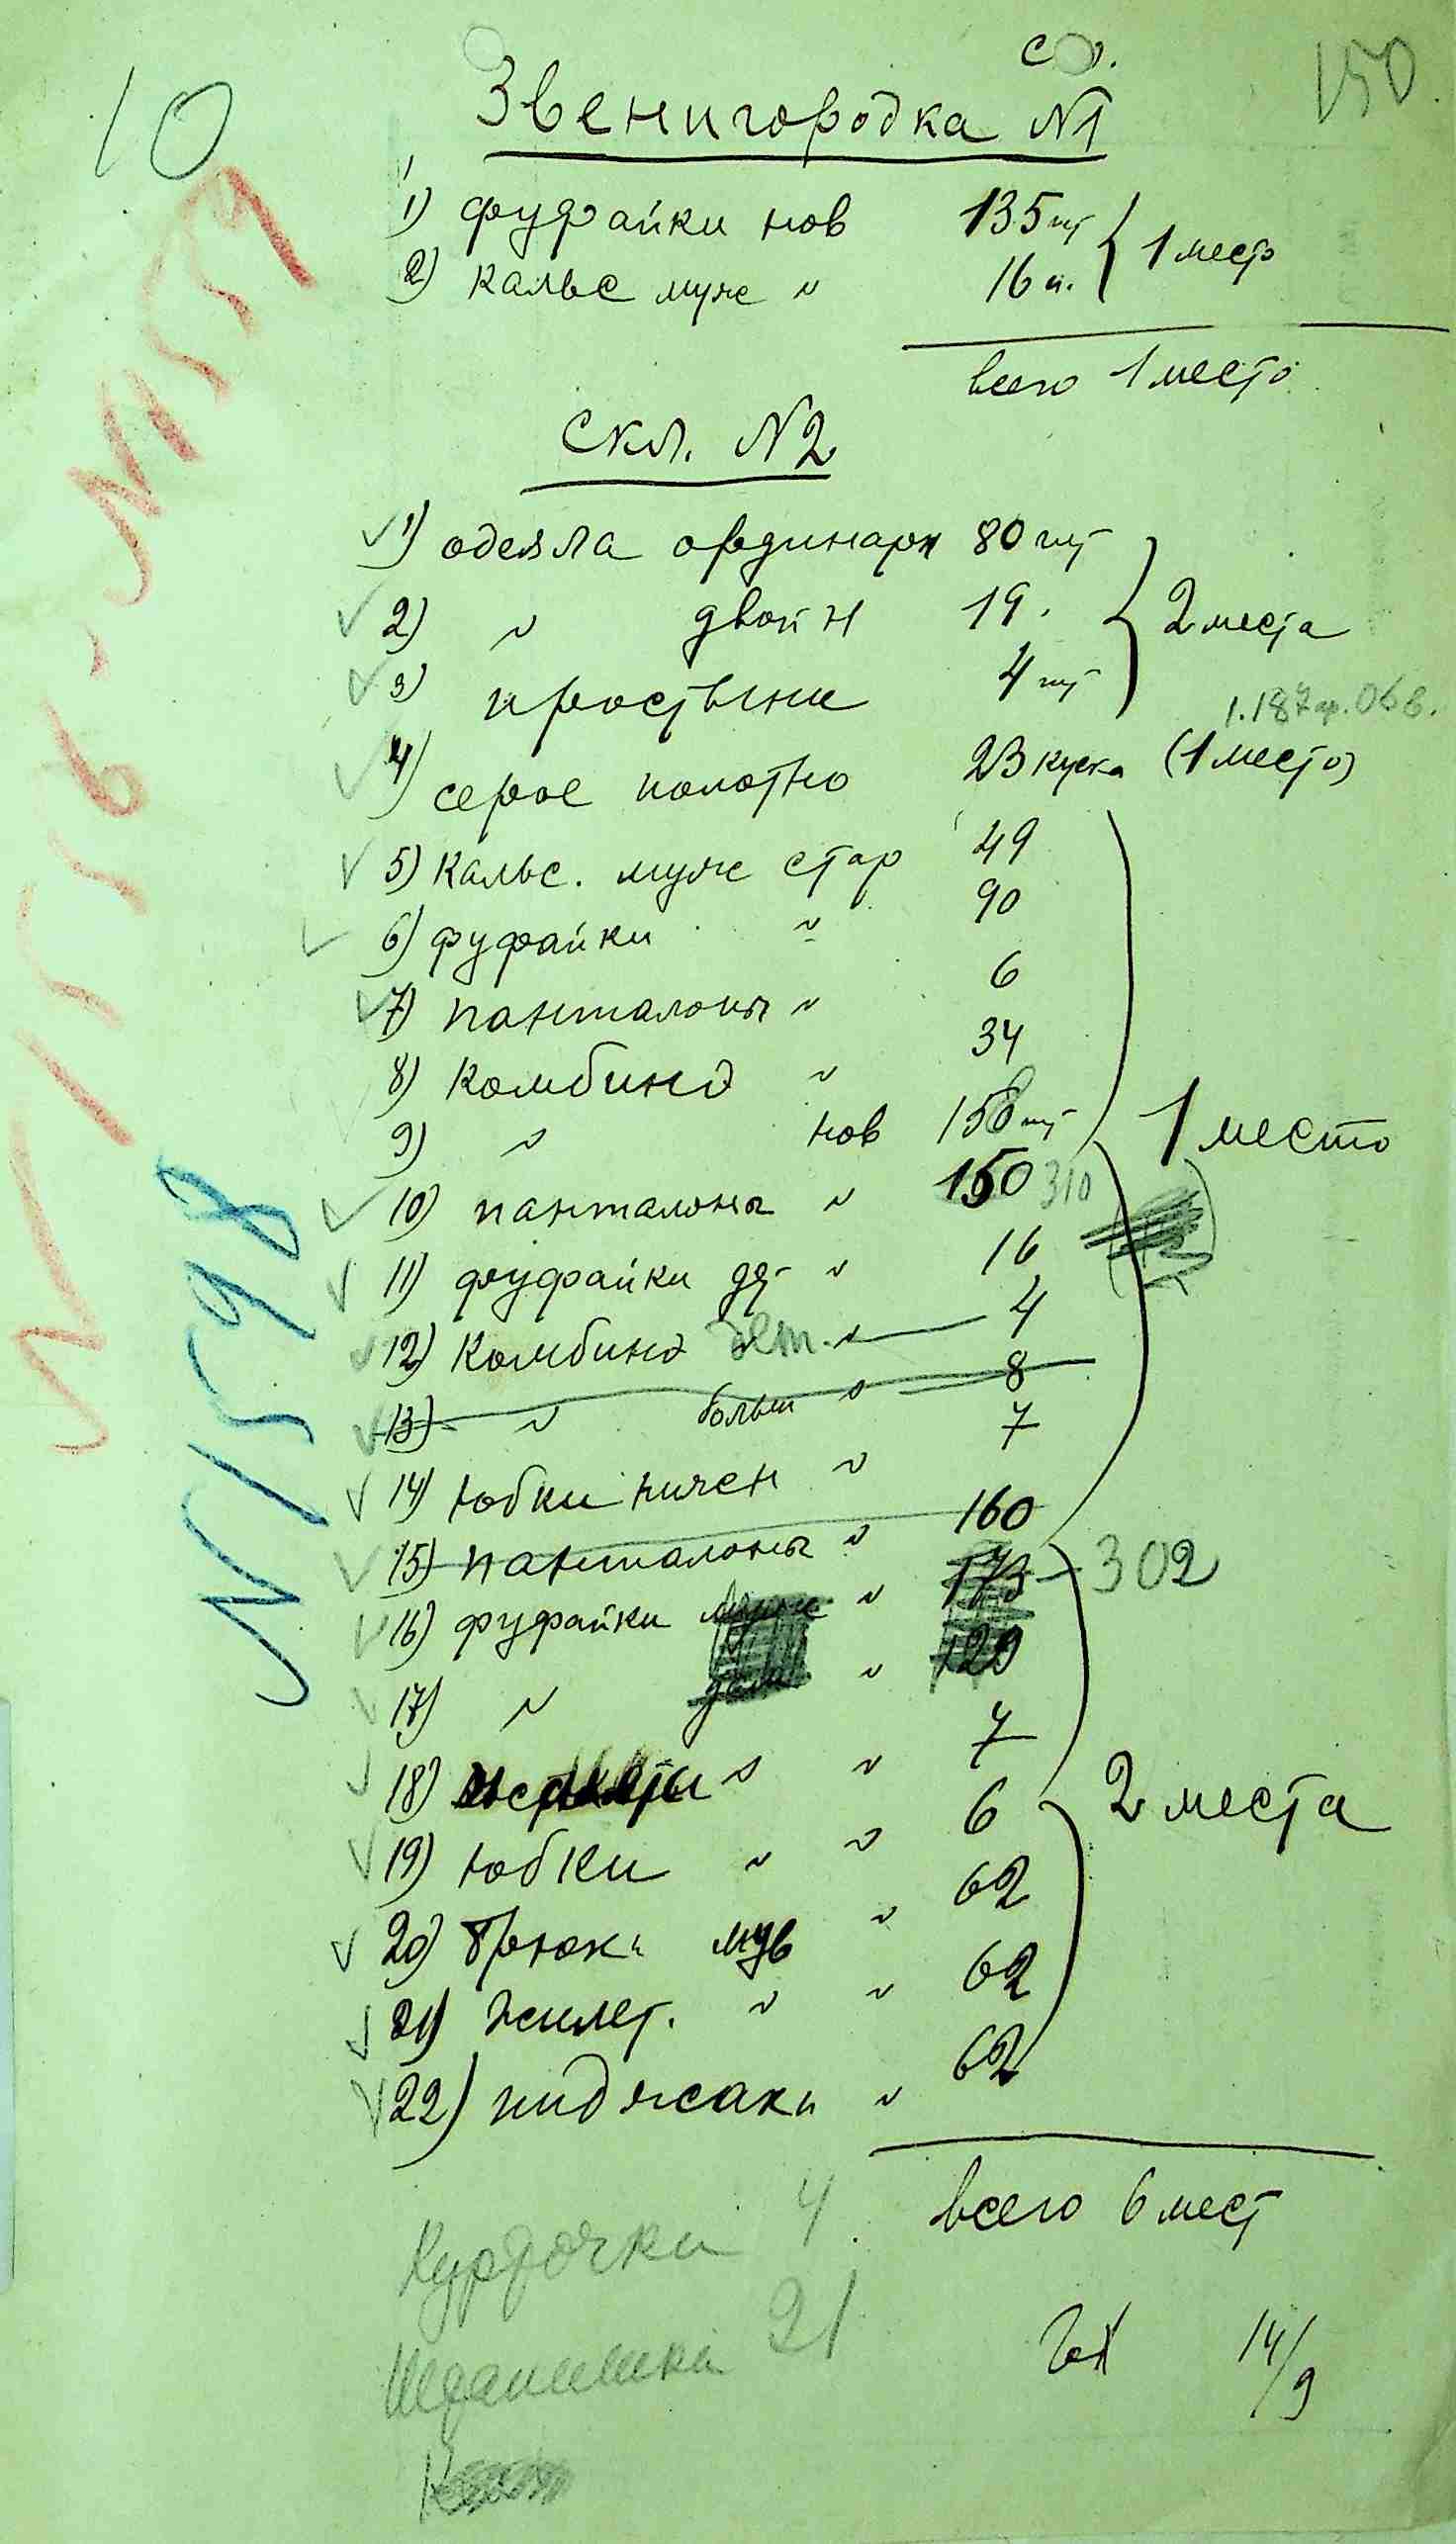 10
150
Звенигородка N1
1) фуфайки нов 135 шт
2) кальс муж " 16 ш. 1 мест
всего 1 место
Скл. N2
1) одеяла ординарн 80 шт
2) " двойн 19. 2 места
3) простыни 4 шт
4) серое полотно 23 куска (1 место)
5) Кальс. муж стар 49
6) фуфайки " 90
7) панталоны " 6
8) Комбинэ " 34
9) " нов 158 шт 1 место
10) панталоны " 150 310
11) фуфайки дет " 16
12) Комбинэ дет. " 4
13) " больш " 8
14) юбки нижен " 7
15) панталоны " 160
16) фуфайки " 173 302
17) " " 129
18) " " 7
19) юбки " " 6 2 места
20) брюки муж " 62
21) жилет. " " 62
22) пиджаки " 62
всего 6 мест
Курточки 4
21
14/9
N 1556 - N 1559
N 1598